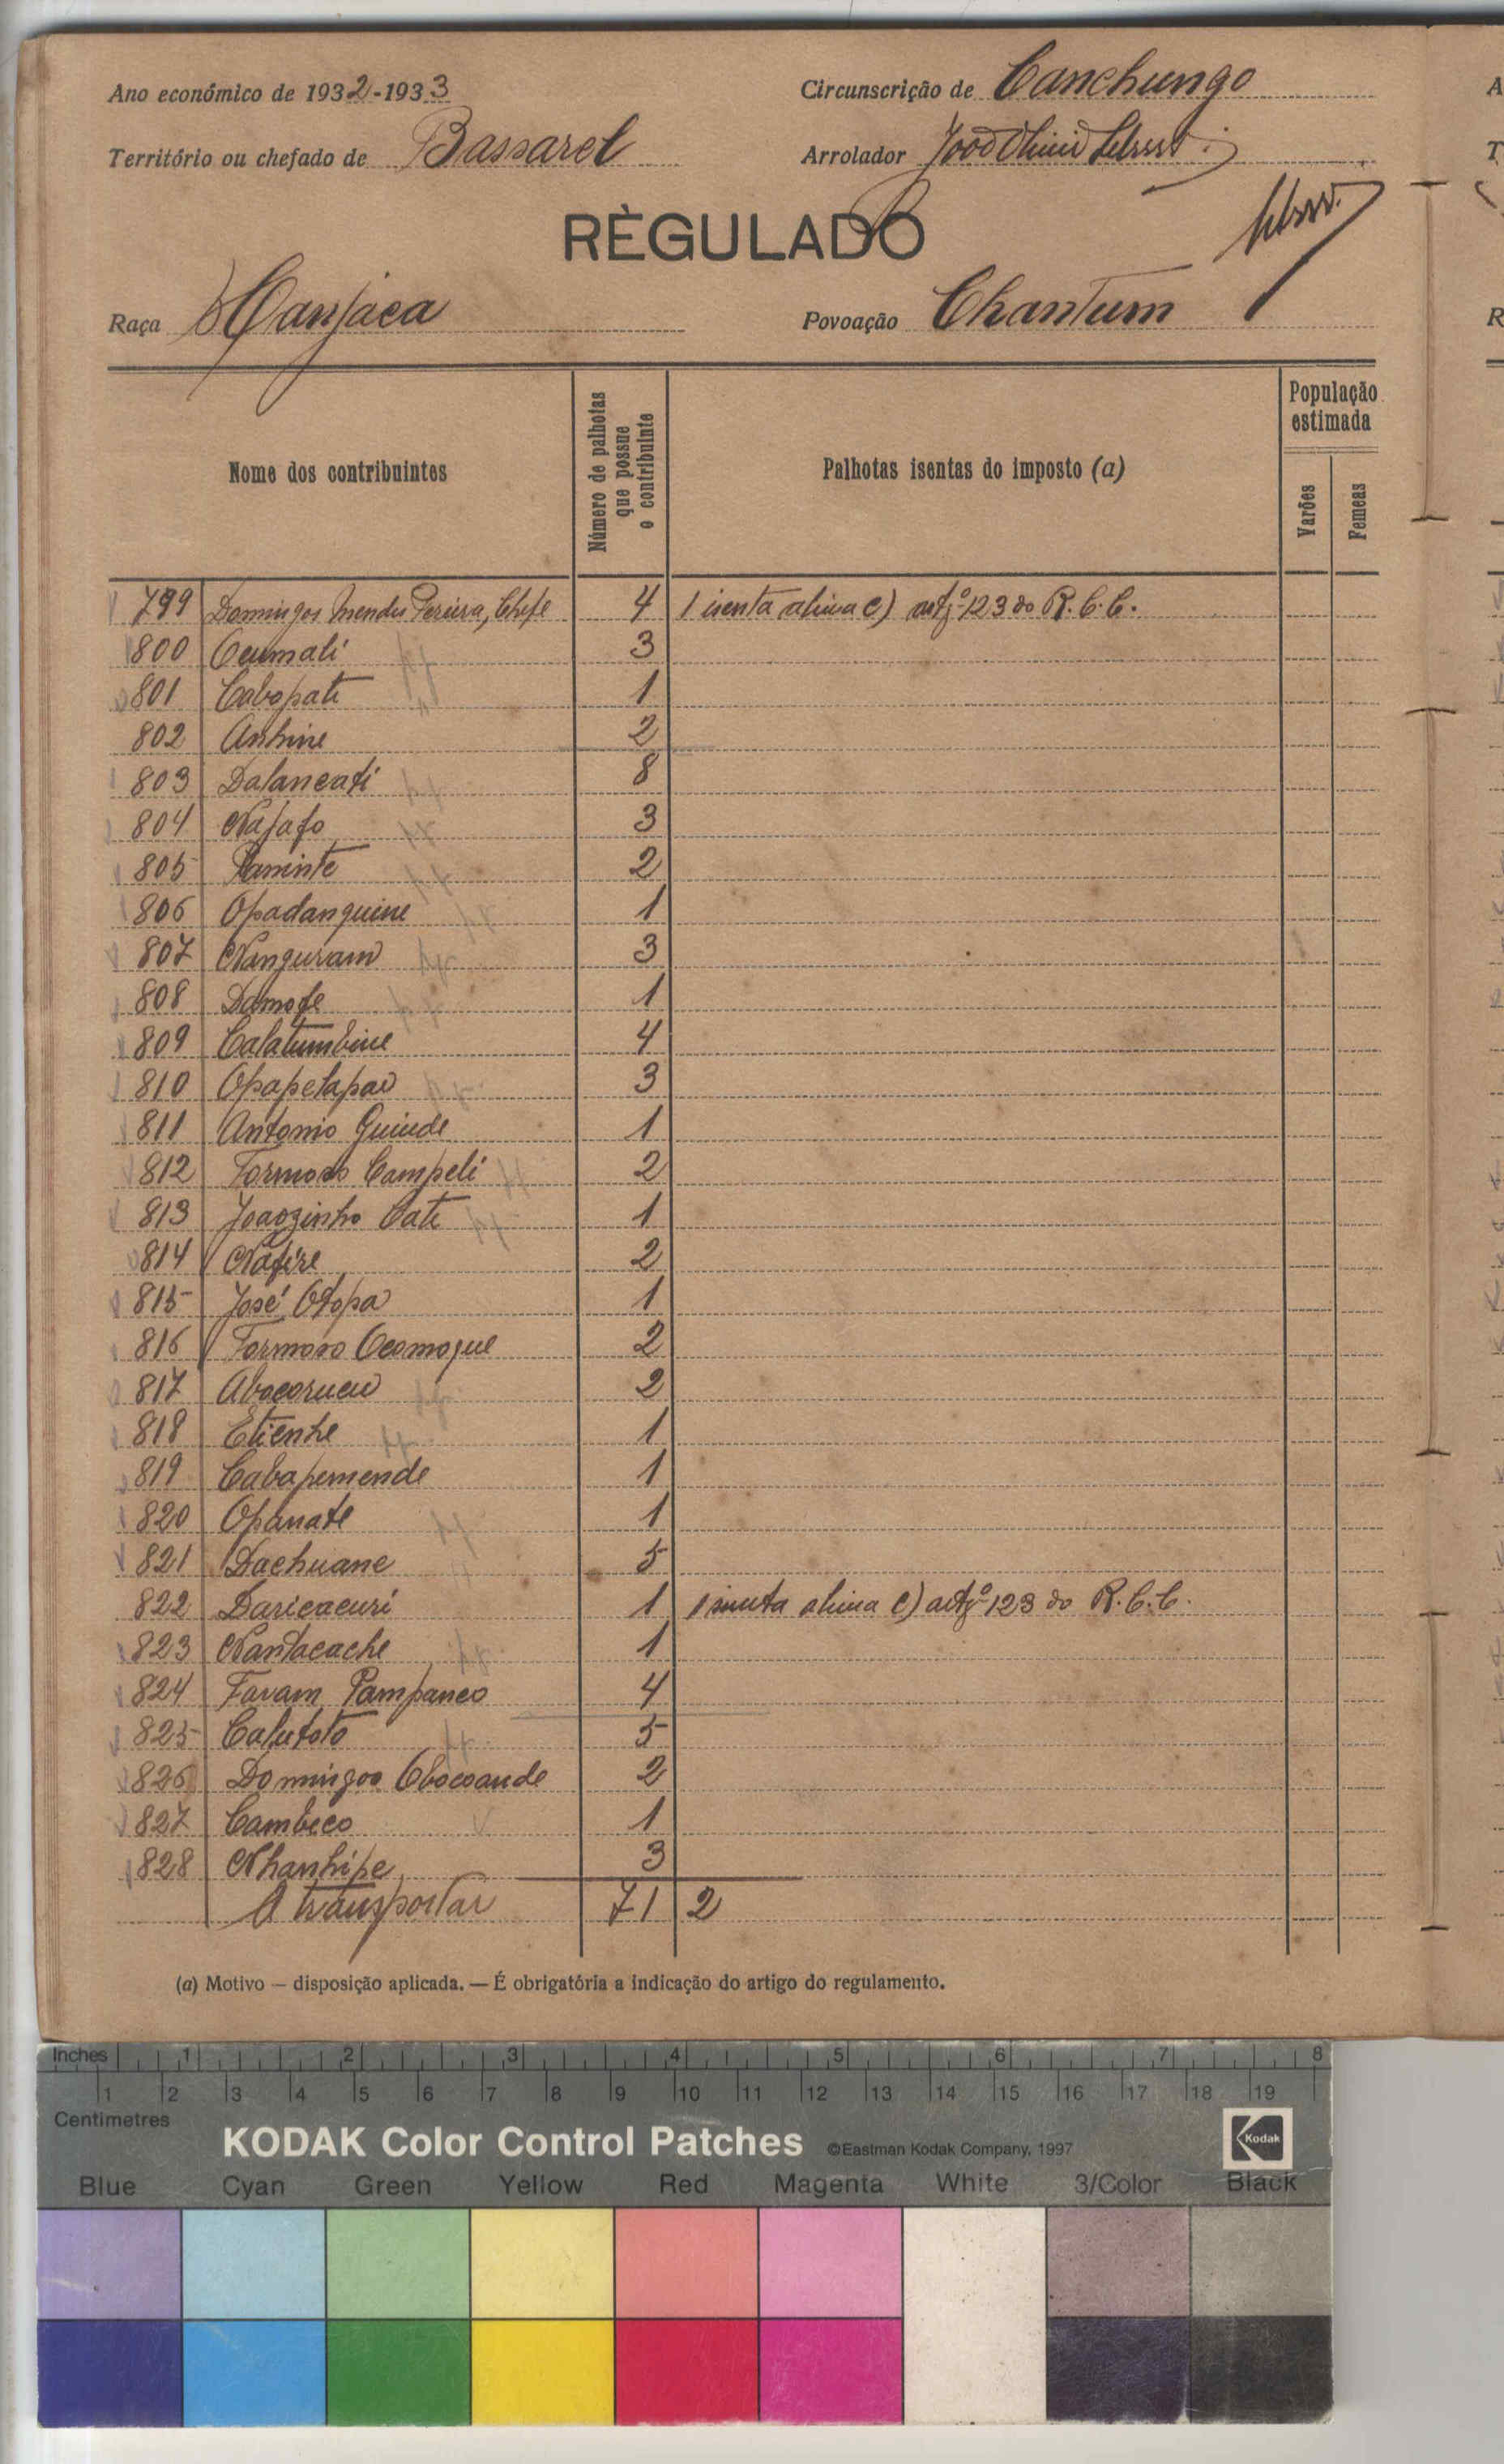 Ano económico de 1932-1933
Circunscrição de Canchungo
Território ou chefado de Bassarel
Arrolador
RÈGULADO
Raça Manjaca
Povoação Chantum
Nome dos contribuintes
Número de palhotas que possue o contribuinte
Palhotas isentas do imposto (a)
População estimada
Varões
Femeas
799 Domingos Mendes Pereira, Chefe 4 1 isenta alinea c) artgº 123 do R.C.C.
800 Ocumali 3
801 Cabopate 1
802 Anhine 2
803 Dalancati 8
804 Najafo 3
805 Paminte 2
806 Opadanguine 1
807 Nanguram 3
808 Damofe 1
809 Calatumbine 4
810 Opapelapao 3
811 Antonio Guinde 1
812 Formoso Campeli 2
813 Joaozinho Cate 1
814 Nafire 2
815 José Otopa 1
816 Formoso Ocomoque 2
817 Abocorucu 2
818 Etienhe 1
819 Cabapemende 1
820 Opanate 1
821 Dachuane 5
822 Daricacuri 1 1 isenta alinea c) artgº 123 do R.C.C.
823 Nantacache 1
824 Favam Pampanco 4
825 Calutoto 5
826 Domingos Obocoande 2
827 Cambeco 1
828 Nhanhipe 3
A transportar 71 2
(a) Motivo — disposição aplicada. — É obrigatória a indicação do artigo do regulamento.
Inches 1 2 3 4 5 6 7 8
1 2 3 4 5 6 7 8 9 10 11 12 13 14 15 16 17 18 19
Centimetres
KODAK Color Control Patches ©Eastman Kodak Company, 1997 Kodak
Blue Cyan Green Yellow Red Magenta White 3/Color Black